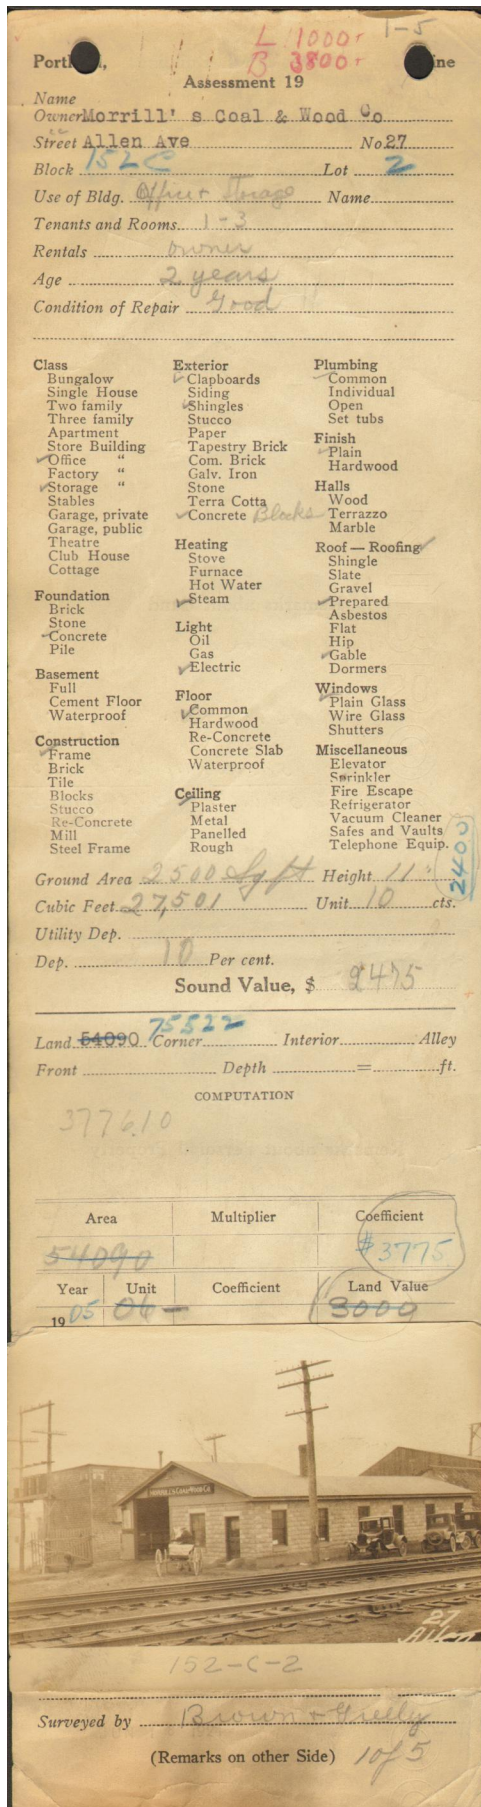 1-5
L 1000
B 3800
Assessment 19
Name
Owner Morrill's Coal & Wood Co
Street Allen Ave No. 27
Block 152 C Lot 2
Use of Bldg. Office + Storage Name
Tenants and Rooms. 1-3
Rentals owner
Age 2 years
Condition of Repair Good
Class
Bungalow
Single House
Two family
Three family
Apartment
Store Building
Office "
Factory "
Storage "
Stables
Garage, private
Garage, public
Theatre
Club House
Cottage
Foundation
Brick
Stone
Concrete
Pile
Basement
Full
Cement Floor
Waterproof
Construction
Frame
Brick
Tile
Blocks
Stucco
Re-Concrete
Mill
Steel Frame
Exterior
Clapboards
Siding
Shingles
Stucco
Paper
Tapestry Brick
Com. Brick
Galv. Iron
Stone
Terra Cotta
Concrete Blocks
Heating
Stove
Furnace
Hot Water
Steam
Light
Oil
Gas
Electric
Floor
Common
Hardwood
Re-Concrete
Concrete Slab
Waterproof
Ceiling
Plaster
Metal
Panelled
Rough
Plumbing
Common
Individual
Open
Set tubs
Finish
Plain
Hardwood
Halls
Wood
Terrazzo
Marble
Roof — Roofing
Shingle
Slate
Gravel
Prepared
Asbestos
Flat
Hip
Gable
Dormers
Windows
Plain Glass
Wire Glass
Shutters
Miscellaneous
Elevator
Sprinkler
Fire Escape
Refrigerator
Vacuum Cleaner
Safes and Vaults
Telephone Equip.
2400
Ground Area 2500 Sq ft Height 11
Cubic Feet 27,501 Unit 10 cts.
Utility Dep.
Dep. 10 Per cent.
Sound Value, $ 2475
75522
Land 54090 Corner Interior Alley
Front Depth = ft.
COMPUTATION
3776.10
Area Multiplier Coefficient
54090 $3775
Year Unit Coefficient Land Value
19 05 06- 3000
MORRILL'S COAL & WOOD CO.
27
Allen
152-C-2
Surveyed by Brown + Greely
(Remarks on other Side) 1 of 5